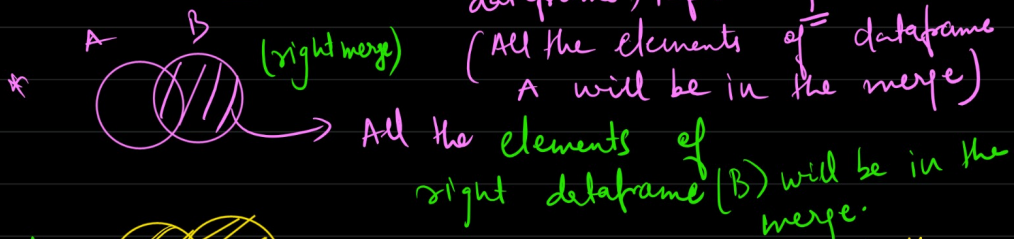 A B (right merge) (All the elements of dataframe
A will be in the merge)
All the elements of
right dataframe (B) will be in the
merge.